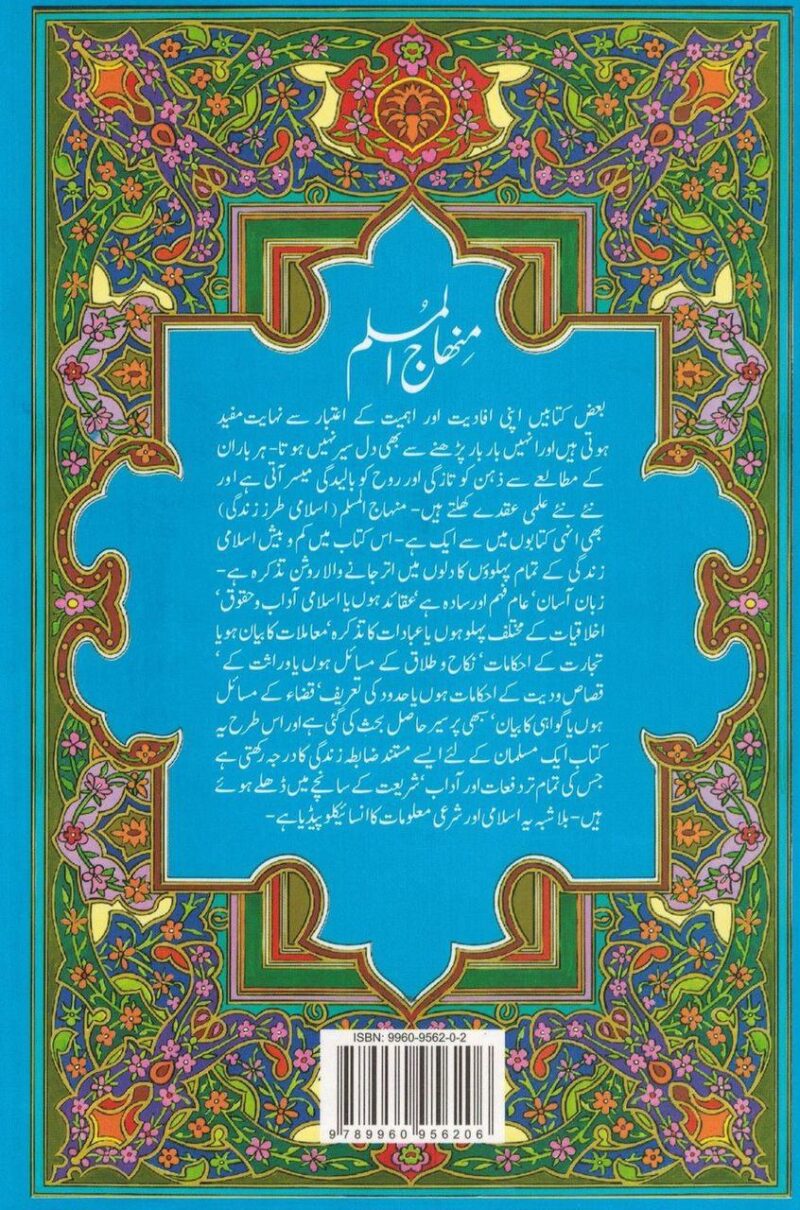 منہاج المسلم
بعض کتابیں اپنی افادیت اور اہمیت کے اعتبار سے نہایت مفید
ہوتی ہیں اور انہیں بار بار پڑھنے سے بھی دل سیر نہیں ہوتا- ہر بار ان
کے مطالعے سے ذہن کو تازگی اور روح کو بالیدگی میسر آتی ہے اور
نئے نئے علمی عقدے کھلتے ہیں- منہاج المسلم (اسلامی طرز زندگی)
بھی انہی کتابوں میں سے ایک ہے- اس کتاب میں کم و بیش اسلامی
زندگی کے تمام پہلوؤں کا دلوں میں اتر جانے والا روشن تذکرہ ہے-
زبان آسان' عام فہم اور سادہ ہے' عقائد ہوں یا اسلامی آداب و حقوق'
اخلاقیات کے مختلف پہلو ہوں یا عبادات کا تذکرہ' معاملات کا بیان ہو یا
تجارت کے احکامات' نکاح و طلاق کے مسائل ہوں یا وراثت کے'
قصاص ودیت کے احکامات ہوں یا حدود کی تعریف' قضاء کے مسائل
ہوں یا گواہی کا بیان' سبھی پر سیر حاصل بحث کی گئی ہے اور اس طرح یہ
کتاب ایک مسلمان کے لئے ایسے مستند ضابطہ زندگی کا درجہ رکھتی ہے
جس کی تمام تر دفعات اور آداب' شریعت کے سانچے میں ڈھلے ہوئے
ہیں- بلاشبہ یہ اسلامی اور شرعی معلومات کا انسائیکلوپیڈیا ہے-
ISBN: 9960-9562-0-2
9 789960 956206